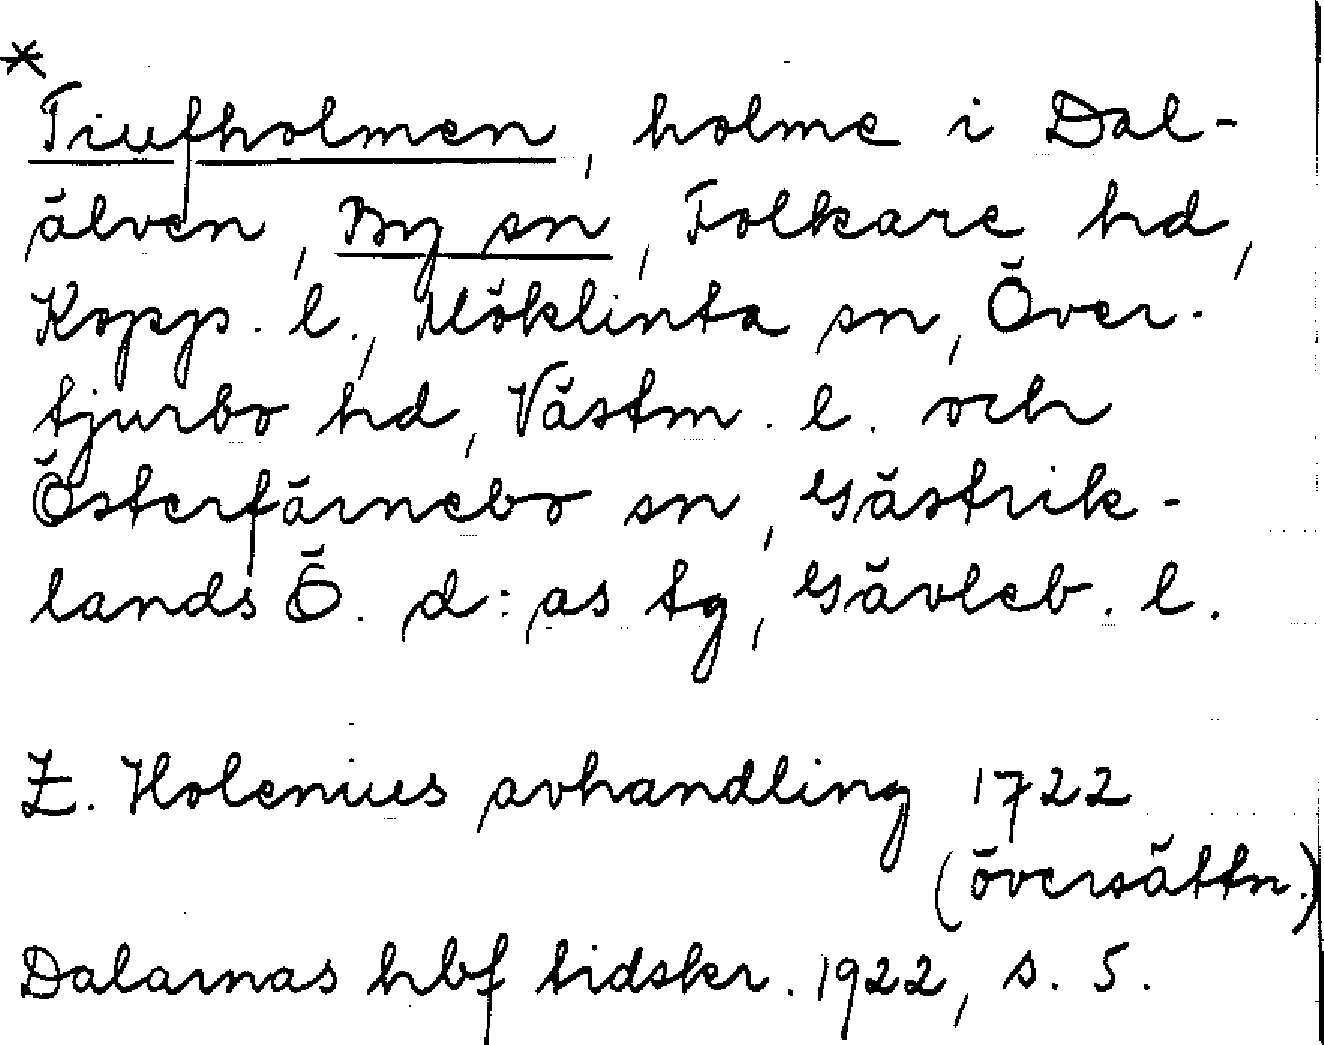 * Tiufholmen, holme i Dal-
älven, By sn, Folkare hd,
Kopp. l., Möklinta sn, Över-
tjurbo hd, Västm. l. och
Österfärnebo sn, Gästrik-
lands Ö. d:as tg, Gävleb. l.
Z. Holenius avhandling 1722
(översättn.)
Dalarnas hbf tidskr. 1922, s. 5.